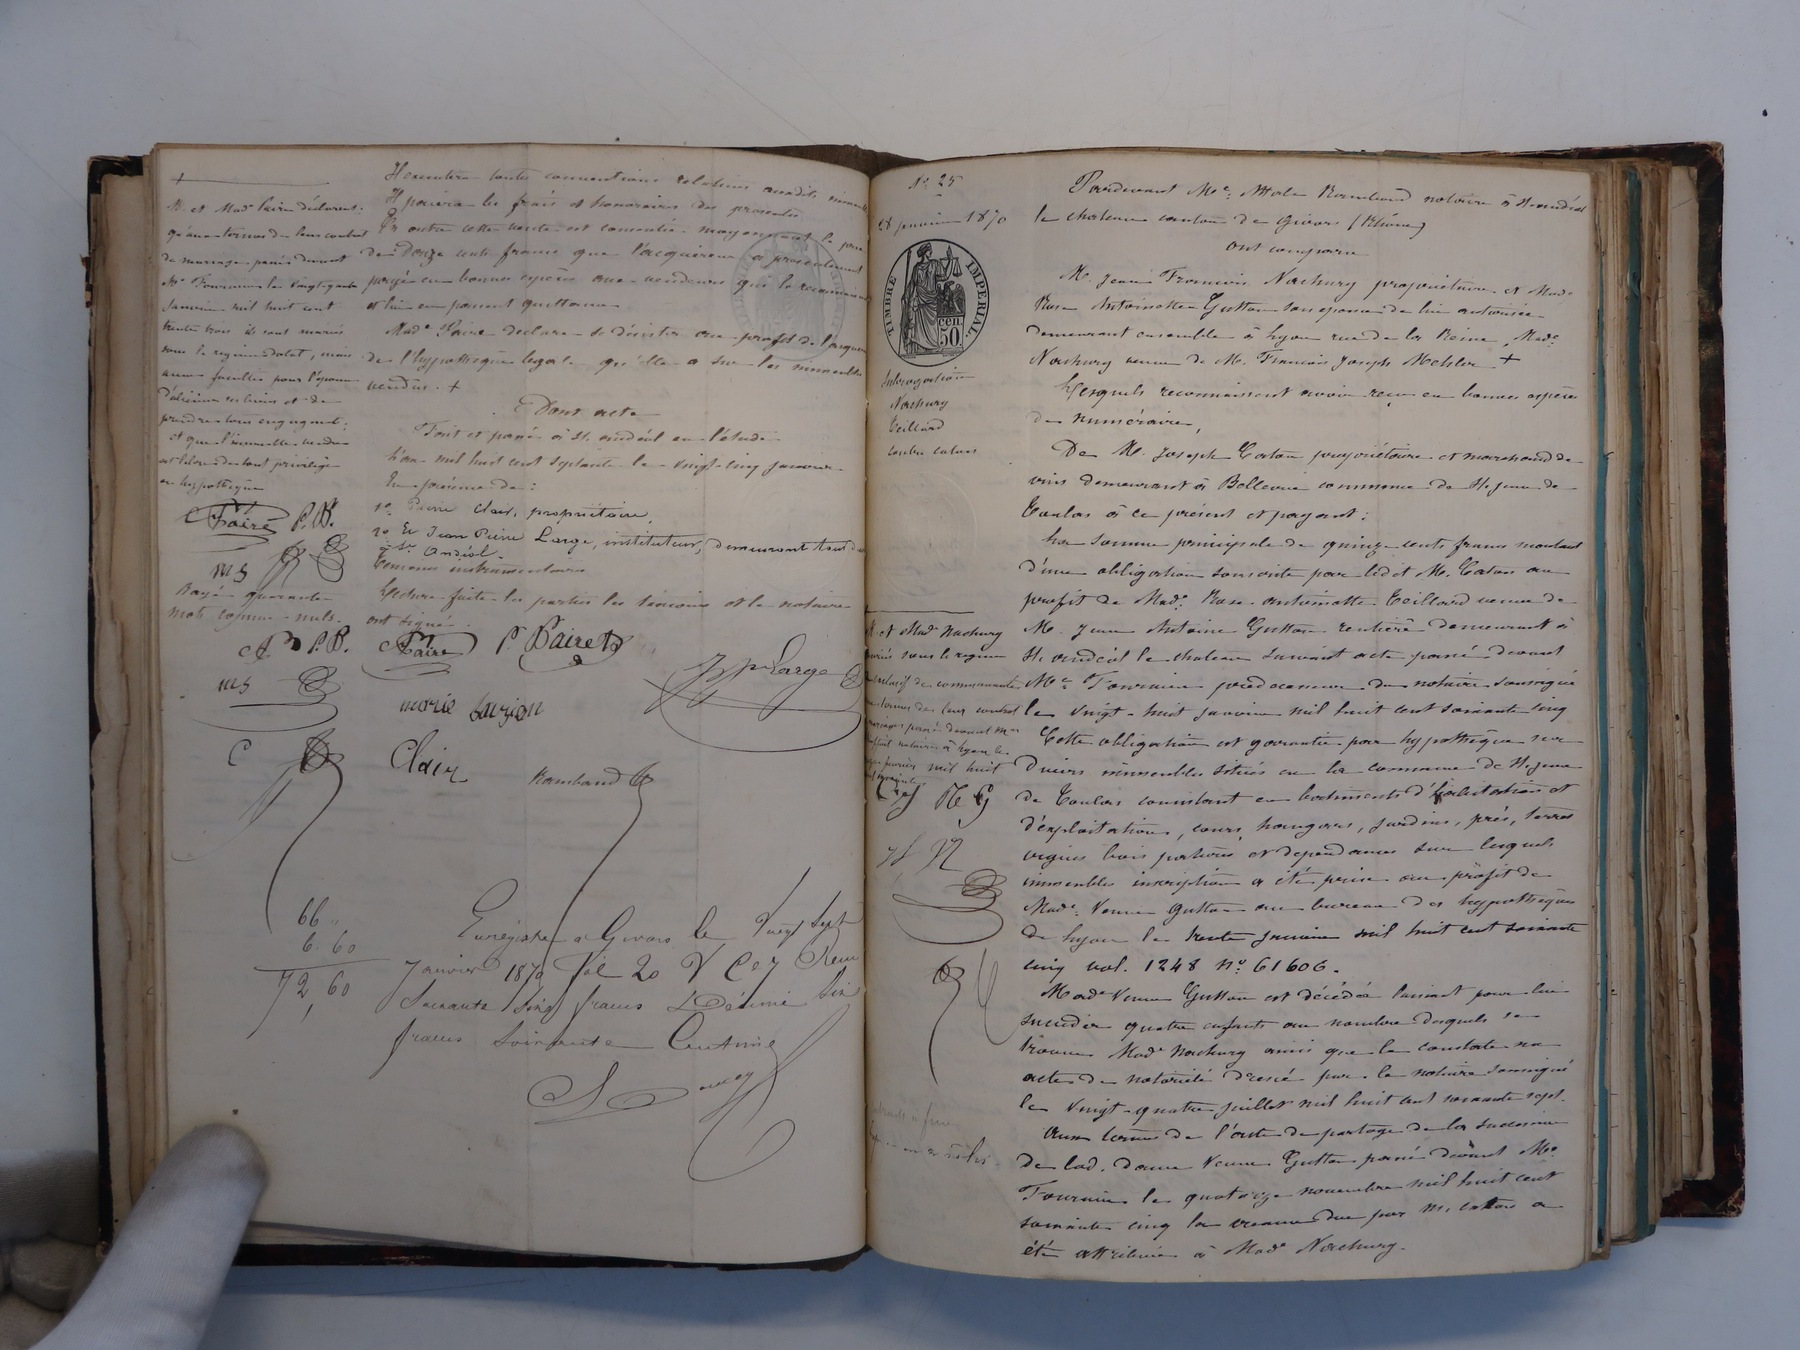 Il exécutera toutes conventions relatives auxdits immeubles
Il paiera les frais et honoraires des présentes
En outre cette vente est consentie moyennant le prix
de Douze cents francs que l'acquéreur a présentement
payé en bonnes espèces aux vendeurs qui le reconnaissent
et lui en passent quittance
Made Faire déclare se désister au profit de l'acquéreur
de l'hypothèque légale qu'elle a sur les immeubles
vendus. +
Dont acte
Fait et passé à St. andéol en l'étude
L'an mil huit cent septante le vingt-cinq janvier
En présence de :
1o Pierre Clair, propriétaire,
2o Et Jean Pierre Large, instituteur, demeurant tous deux
à St. Andéol.
Témoins instrumentaires
Lecture faite les parties les témoins et le notaire
ont signé.
+
M. et Made Faire déclarent :
qu'aux termes de leur contrat
de mariage passé devant
Me Fournier le vingt-quatre
janvier mil huit cent
trente trois ils sont mariés
sous le régime dotal, mais
avec faculté pour l'épouse
et que l'immeuble vendu
est libre de tout privilège
ou hypothèque
Faire P.B.
mS
Rayé quarante
mots comme nuls.
P.B.
mS
Faire
JPre Large
Clair
Rambaud
66 "
6. 60
72, 60
Enregistré à Givors le Vingt Sept
Janvier 1870 fol 20 V C 7 Reçu
Soixante Six francs Décime Six
francs Soixante Centimes
No 25
28 janvier 1870
TIMBRE IMPERIAL
50 cen.
Subrogation
Nachury
Teillard
contre Catan
Pardevant Me Rambaud notaire à St andéol
le chateau canton de Givors (Rhône)
ont comparu
M. Jean François Nachury propriétaire et Made
Rose Antoinette Gutton son épouse de lui autorisée
demeurant ensemble à Lyon rue de la Reine, Made
Nachury veuve de M. François Joseph Mehler +
Lesquels reconnaissent avoir reçu en bonnes espèces
de numéraire,
De M. Joseph Catan propriétaire et marchand de
vins demeurant à Bellevue commune de St. jean de
Toulas à ce présent et payant :
La somme principale de quinze cents francs montant
d'une obligation souscrite par ledit M. Catan au
profit de Made Rose antoinette Teillard veuve de
M. Jean Antoine Gutton rentière demeurant à
St. andéol le chateau suivant acte passé devant
Me Fournier prédécesseur du notaire soussigné
le vingt-huit janvier mil huit cent soixante cinq
Cette obligation est garantie par hypothèque sur
divers immeubles situés en la commune de St. jean
de Toulas consistant en batiments d'habitation et
d'exploitation, cours, hangars, jardins, prés, terres
vignes bois patures et dépendances sur lesquels
immeubles inscription a été prise au profit de
Made Veuve Gutton au bureau des hypothèques
de Lyon le trente janvier mil huit cent soixante
cinq vol. 1248 No 61606.
Made Veuve Gutton est décédée laissant pour lui
succéder quatre enfants au nombre desquels se
trouve Made Nachury ainsi que le constate un
acte de notoriété dressé par le notaire soussigné
le vingt-quatre juillet mil huit cent soixante sept.
Aux termes de l'acte de partage de la succession
de lad. dame Veuve Gutton passé devant Me
Fournier le quatorze novembre mil huit cent
soixante cinq la créance due par M. Catan a
été attribuée à Made Nachury.
M. et Made Nachury
mariés sous le régime
exclusif de communauté
aux termes de leur contrat
de mariage passé devant Me
notaire à Lyon le
février mil huit
R G